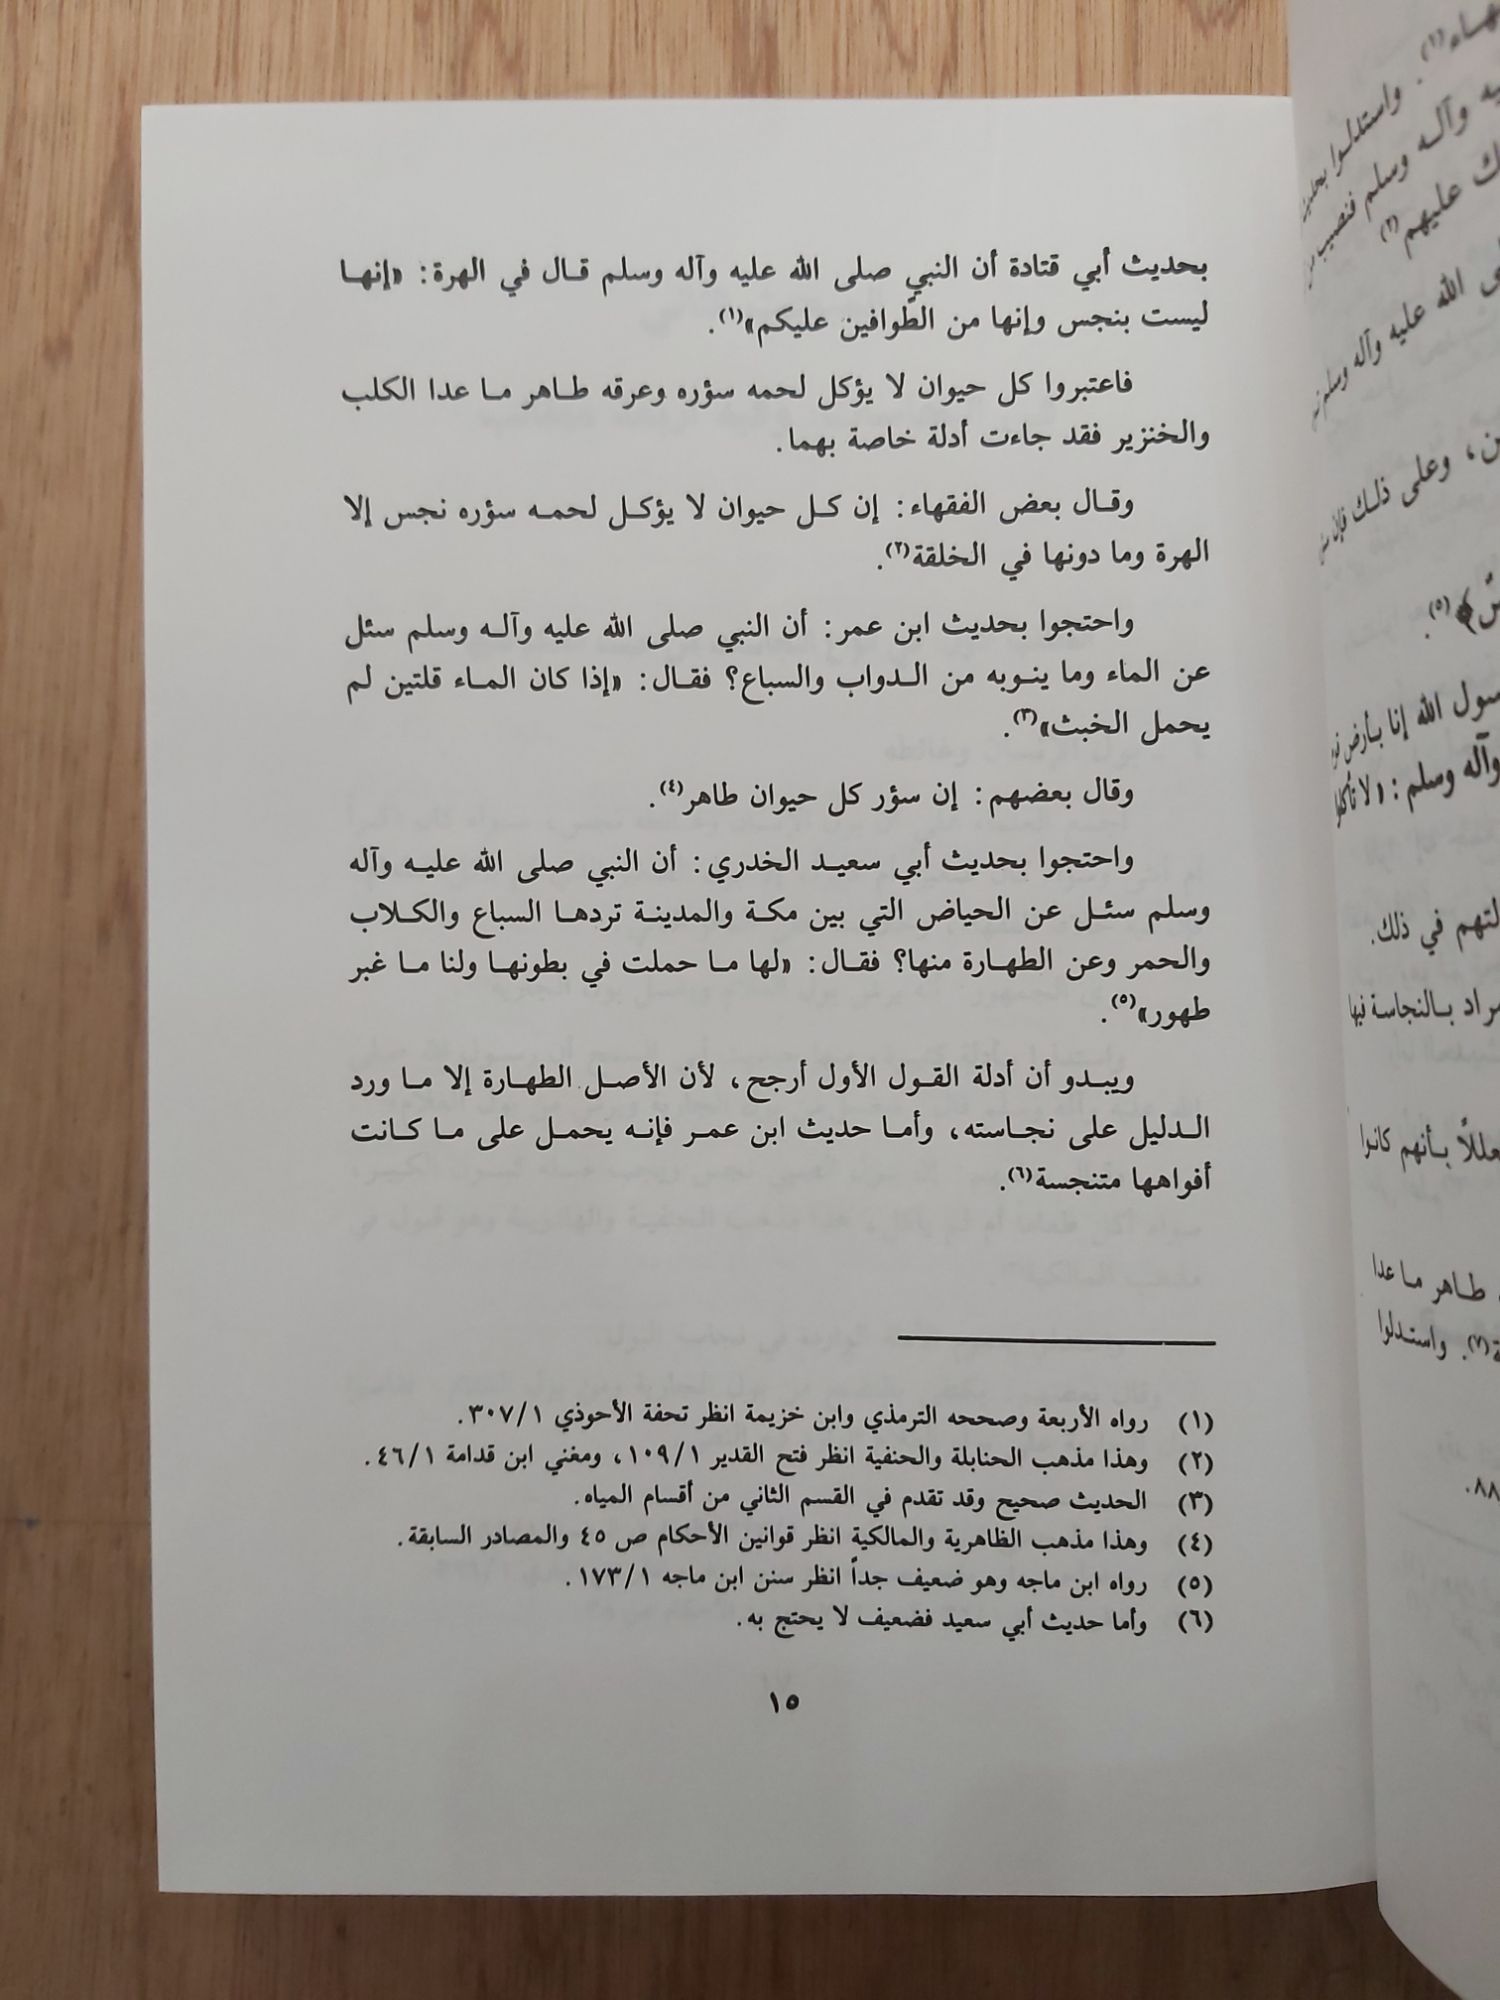 بحديث أبي قتادة أن النبي صلى الله عليه وآله وسلم قال في الهرة: «إنها
ليست بنجس وإنها من الطّوافين عليكم»(١).
فاعتبروا كل حيوان لا يؤكل لحمه سؤره وعرقه طاهر ما عدا الكلب
والخنزير فقد جاءت أدلة خاصة بهما.
وقال بعض الفقهاء: إن كل حيوان لا يؤكل لحمه سؤره نجس إلا
الهرة وما دونها في الخلقة(٢).
واحتجوا بحديث ابن عمر: أن النبي صلى الله عليه وآله وسلم سئل
عن الماء وما ينوبه من الدواب والسباع؟ فقال: «إذا كان الماء قلتين لم
يحمل الخبث»(٣).
وقال بعضهم: إن سؤر كل حيوان طاهر(٤).
واحتجوا بحديث أبي سعيد الخدري: أن النبي صلى الله عليه وآله
وسلم سئل عن الحياض التي بين مكة والمدينة تردها السباع والكلاب
والحمر وعن الطهارة منها؟ فقال: «لها ما حملت في بطونها ولنا ما غبر
طهور»(٥).
ويبدو أن أدلة القول الأول أرجح، لأن الأصل الطهارة إلا ما ورد
الدليل على نجاسته، وأما حديث ابن عمر فإنه يحمل على ما كانت
أفواهها متنجسة(٦).
(١) رواه الأربعة وصححه الترمذي وابن خزيمة انظر تحفة الأحوذي ٣٠٧/١.
(٢) وهذا مذهب الحنابلة والحنفية انظر فتح القدير ١٠٩/١، ومغني ابن قدامة ٤٦/١.
(٣) الحديث صحيح وقد تقدم في القسم الثاني من أقسام المياه.
(٤) وهذا مذهب الظاهرية والمالكية انظر قوانين الأحكام ص ٤٥ والمصادر السابقة.
(٥) رواه ابن ماجه وهو ضعيف جداً انظر سنن ابن ماجه ١٧٣/١.
(٦) وأما حديث أبي سعيد فضعيف لا يحتج به.
١٥
واستدلوا
وآله وسلم فنصيب
عليهم(٢)
الله عليه وآله وسلم
وعلى ذلك فإن
(٥).
الله إنا بأرض
وآله وسلم: «لا تأكلوا
في ذلك.
بالنجاسة فيها
بأنهم كانوا
طاهر ما عدا
واستدلوا